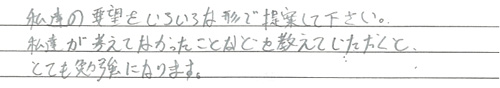 私達の要望をいろいろな形で提案して下さい。
私達が考えてなかったことなどを教えていただくと、
とても勉強になります。